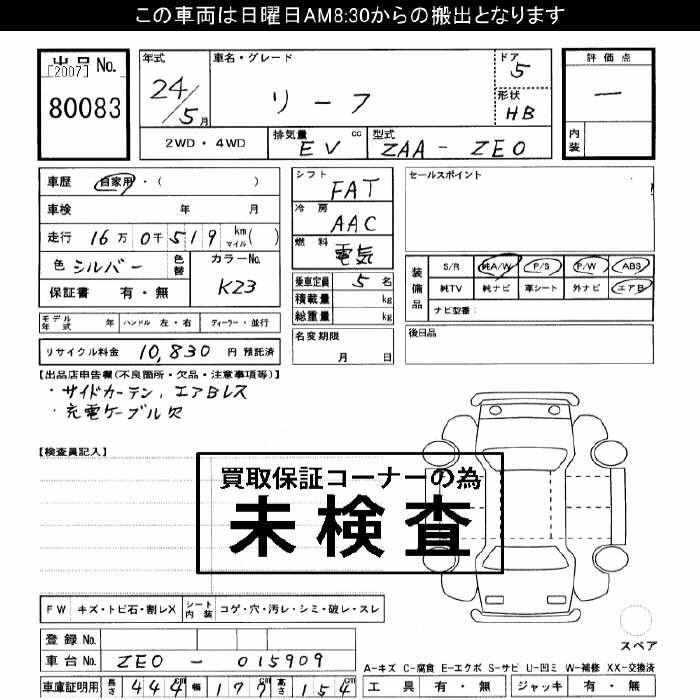 この車両は日曜日AM8:30からの搬出となります
出品 No.
[2007]
80083
年式
24/5月
車名・グレード
リーフ
ドア
5
形状
HB
評価点
ー
内装
2WD・4WD
排気量 cc
EV
型式
ZAA-ZE0
車歴 自家用・( )
車検 年 月
走行 16万0千519 km マイル( )
色 シルバー 色替
カラーNo.
K23
保証書 有・無
モデル年式 年 ハンドル 左・右 ディーラー・並行
リサイクル料金 10,830 円 預託済
シフト
FAT
冷房
AAC
燃料
電気
乗車定員 5 名
積載量 kg
総重量 kg
名変期限
月 日
セールスポイント
装備品
S/R 純A/W P/S P/W ABS
純TV 純ナビ 革シート 外ナビ エアB
ナビ型番:
後日品
【出品店申告欄(不良箇所・欠品・注意事項等)】
・サイドカーテン、エアBレス
・充電ケーブル欠
【検査員記入】
買取保証コーナーの為
未検査
FW キズ・トビ石・割レX シート内装 コゲ・穴・汚レ・シミ・破レ・スレ
登録No.
車台No. ZE0-015909
車庫証明用 長さ 444cm 幅 177cm 高さ 154cm
スペア
A-キズ C-腐食 E-エクボ S-サビ U-凹ミ W-補修 XX-交換済
工具 有・無 ジャッキ 有・無